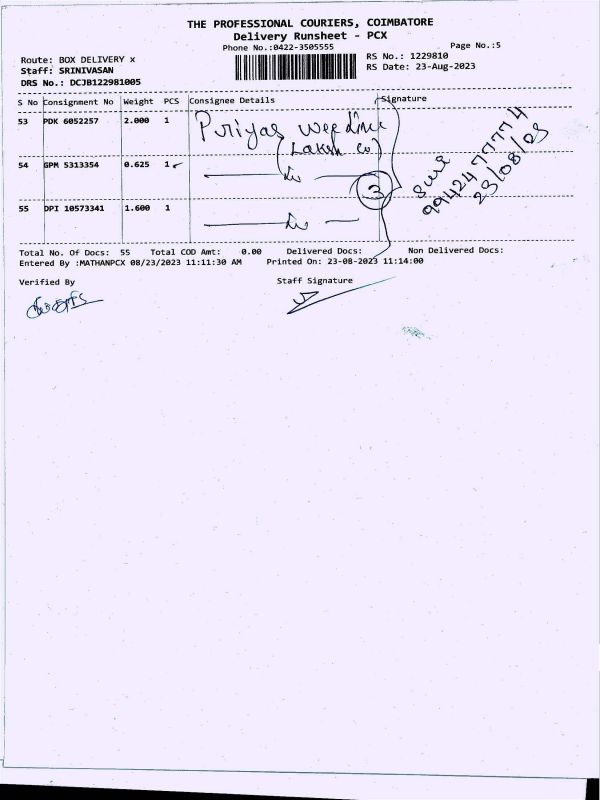 THE PROFESSIONAL COURIERS, COIMBATORE
Delivery Runsheet - PCX
Phone No.:0422-3505555
Page No.:5
Route: BOX DELIVERY x
RS No.: 1229810
Staff: SRINIVASAN
RS Date: 23-Aug-2023
DRS No.: DCJB122981005
S No Consignment No Weight PCS Consignee Details Signature
53 PDK 6052257 2.000 1 Priyas
54 GPM 5313354 0.625 1
3
9942477774
23/08/23
55 DPI 10573341 1.600 1
Total No. Of Docs: 55 Total COD Amt: 0.00 Delivered Docs: Non Delivered Docs:
Entered By :MATHANPCX 08/23/2023 11:11:30 AM Printed On: 23-08-2023 11:14:00
Verified By Staff Signature